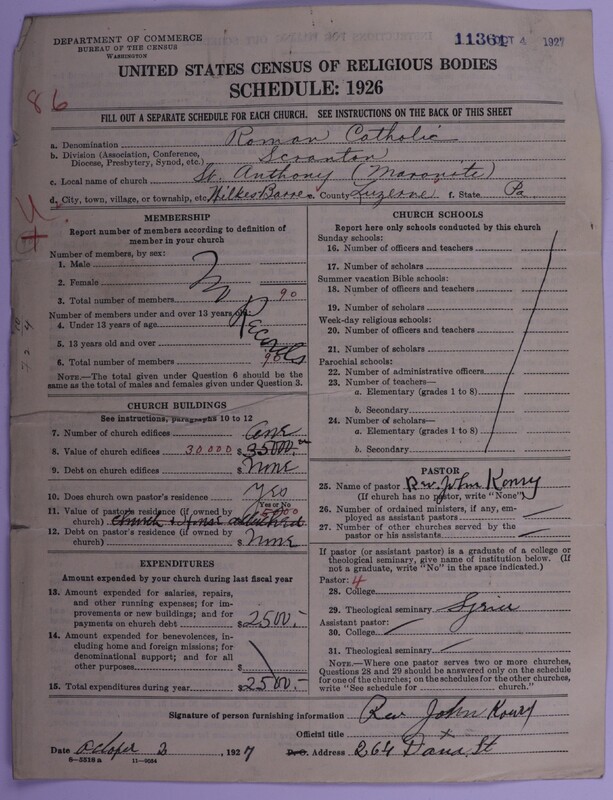 DEPARTMENT OF COMMERCE
BUREAU OF THE CENSUS
WASHINGTON
11361 OCT 4 1927
UNITED STATES CENSUS OF RELIGIOUS BODIES
SCHEDULE: 1926
86
FILL OUT A SEPARATE SCHEDULE FOR EACH CHURCH. SEE INSTRUCTIONS ON THE BACK OF THIS SHEET
a. Denomination Roman Catholic
b. Division (Association, Conference, Diocese, Presbytery, Synod, etc.) Scranton
c. Local name of church St. Anthony (Maronite)
d. City, town, village, or township, etc. Wilkes Barre e. County Luzerne f. State Pa
MEMBERSHIP
Report number of members according to definition of
member in your church
Number of members, by sex:
1. Male
2. Female
3. Total number of members 90
No Records
Number of members under and over 13 years old:
4. Under 13 years of age
5. 13 years old and over
6. Total number of members
NOTE.—The total given under Question 6 should be the
same as the total of males and females given under Question 3.
CHURCH BUILDINGS
See instructions, paragraphs 10 to 12
7. Number of church edifices One
8. Value of church edifices 30,000 $35000.
9. Debt on church edifices $None
10. Does church own pastor's residence Yes
Yes or No
11. Value of pastor's residence (if owned by
church) $5000 Church & House attached
12. Debt on pastor's residence (if owned by
church) $None
EXPENDITURES
Amount expended by your church during last fiscal year
13. Amount expended for salaries, repairs,
and other running expenses; for im-
provements or new buildings; and for
payments on church debt $2500.-
14. Amount expended for benevolences, in-
cluding home and foreign missions; for
denominational support; and for all
other purposes $
15. Total expenditures during year $2500.-
CHURCH SCHOOLS
Report here only schools conducted by this church
Sunday schools:
16. Number of officers and teachers
17. Number of scholars
Summer vacation Bible schools:
18. Number of officers and teachers
19. Number of scholars
Week-day religious schools:
20. Number of officers and teachers
21. Number of scholars
Parochial schools:
22. Number of administrative officers
23. Number of teachers—
a. Elementary (grades 1 to 8)
b. Secondary
24. Number of scholars—
a. Elementary (grades 1 to 8)
b. Secondary
PASTOR
25. Name of pastor Rev. John Konry
(If church has no pastor, write "None")
26. Number of ordained ministers, if any, em-
ployed as assistant pastors
27. Number of other churches served by the
pastor or his assistants
If pastor (or assistant pastor) is a graduate of a college or
theological seminary, give name of institution below. (If
not a graduate, write "No" in the space indicated.)
Pastor: 4
28. College
29. Theological seminary
Assistant pastor:
30. College
31. Theological seminary
NOTE.—Where one pastor serves two or more churches,
Questions 28 and 29 should be answered only on the schedule
for one of the churches; on the schedules for the other churches,
write "See schedule for church."
Signature of person furnishing information Rev John
Official title
Date October 2, 1927 P.O. Address 264 Dana St
8—5318 a 11—9034